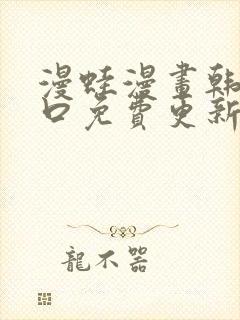 漫蛙漫畫韓
口免費更新
龍不器